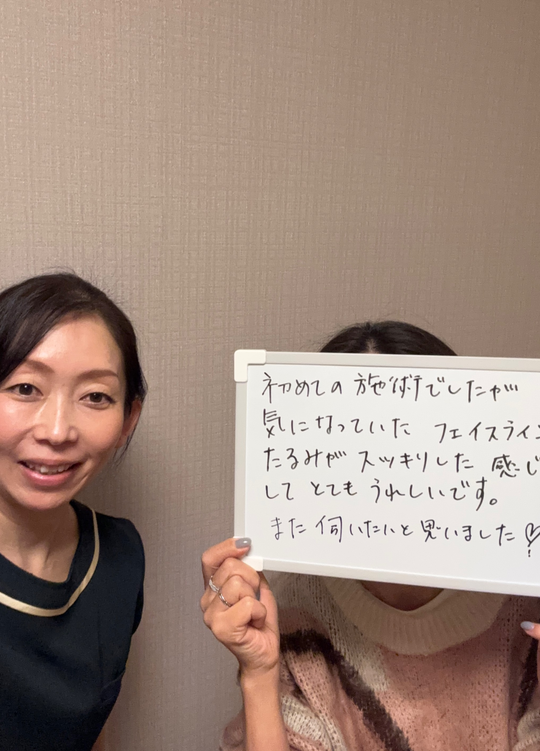 初めての施術でしたが
気になっていた フェイスライン
たるみが スッキリした 感じ
して とても うれしいです。
また 伺いたいと思いました♡!